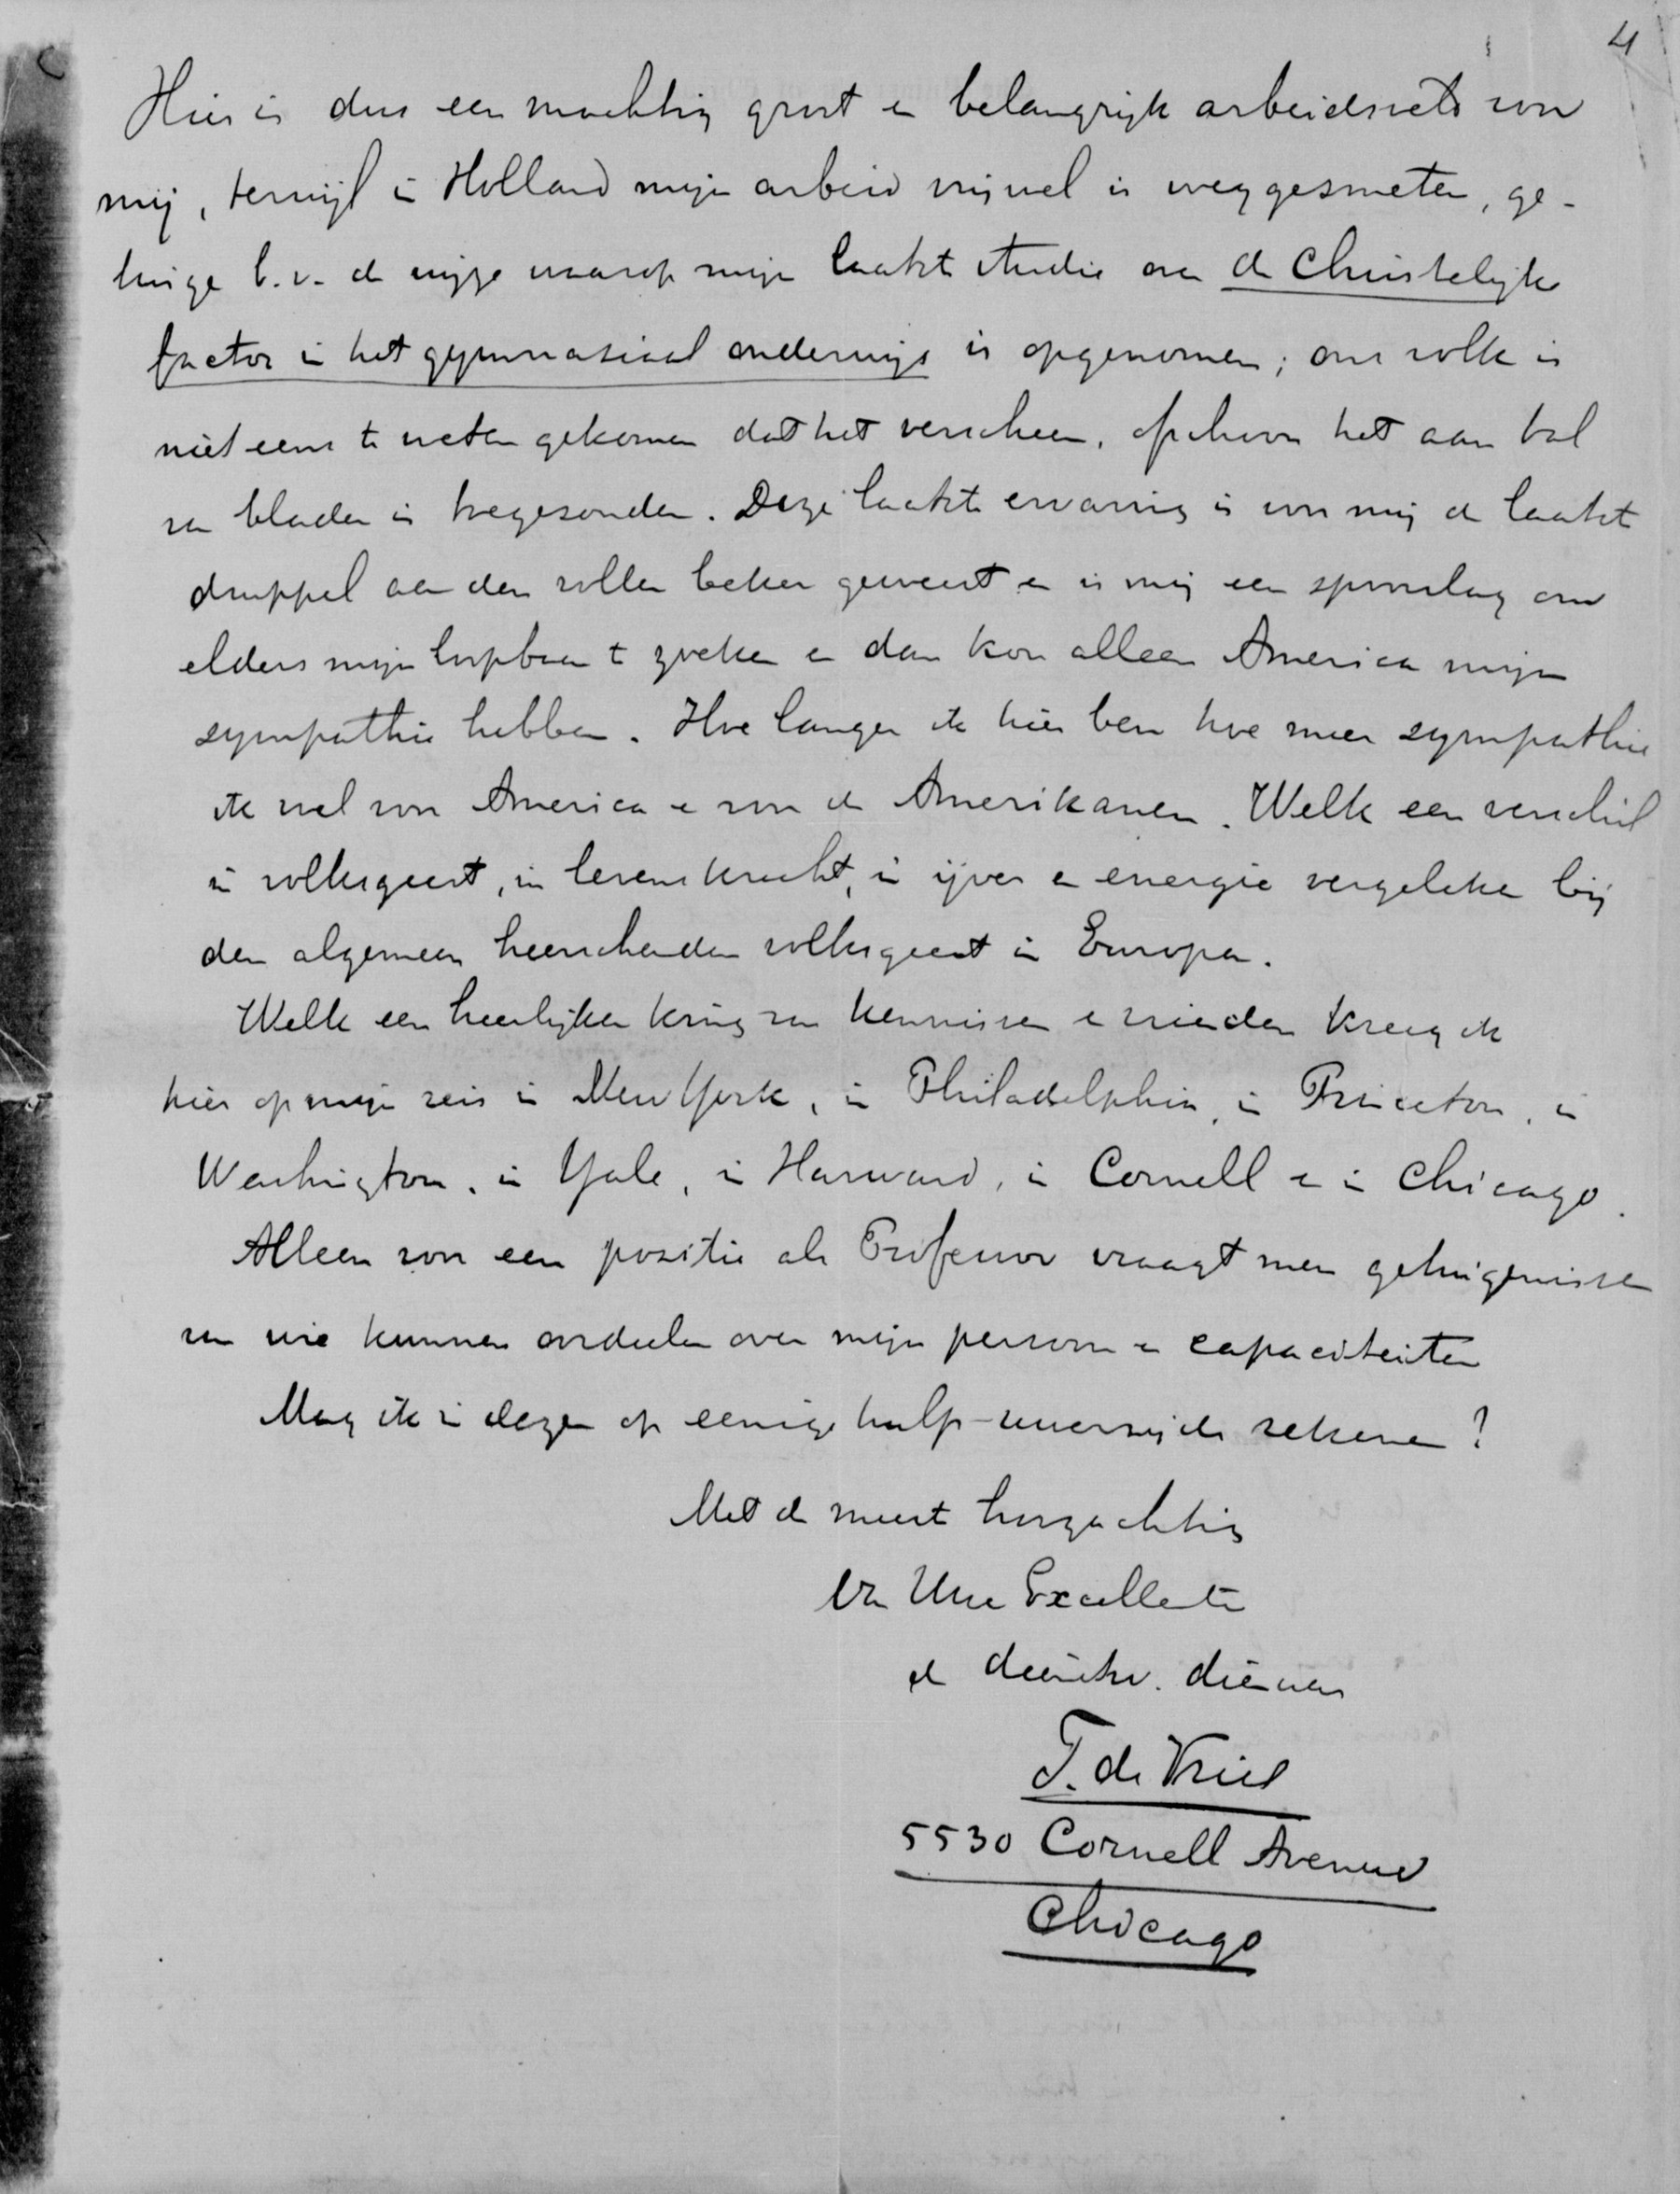 4
Hier is dus een machtig groot en belangrijk arbeidsveld voor
mij, terwijl in Holland mijn arbeid vrijwel is weggesmeten, ge-
tuige b.v. de wijze waarop mijn laatste studie over de Christelijke
factor in het gymnasiaal onderwijs is opgenomen; ons volk is
niet eens te weten gekomen dat het verscheen, ofschoon het aan tal
van bladen is toegezonden. Deze laatste ervaring is voor mij de laatste
druppel aan den vollen beker geweest en is mij een spoorslag om
elders mijn loopbaan te zoeken en dan kon alleen America mijn
sympathie hebben. Hoe langer ik hier ben hoe meer sympathie
ik voel voor America en voor de Amerikanen. Welk een verschil
in volksgeest, in levenskracht, in ijver en energie vergeleken bij
den algemeen heerschenden volksgeest in Europa.
Welk een heerlijken kring van kennissen en vrienden kreeg ik
hier op mijn reis in New York, in Philadelphia, in Princeton, in
Washington, in Yale, in Harward, in Cornell en in Chicago.
Alleen voor een positie als Professor vraagt men getuigenissen
van wie kunnen oordeelen over mijn persoon en capaciteiten
Mag ik in dezen op eenige hulp uwerzijds rekenen?
Met de meeste hoogachting
Van Uwe Excellentie
de dienstw. dienaar
T. de Vries
5530 Cornell Avenue
Chicago